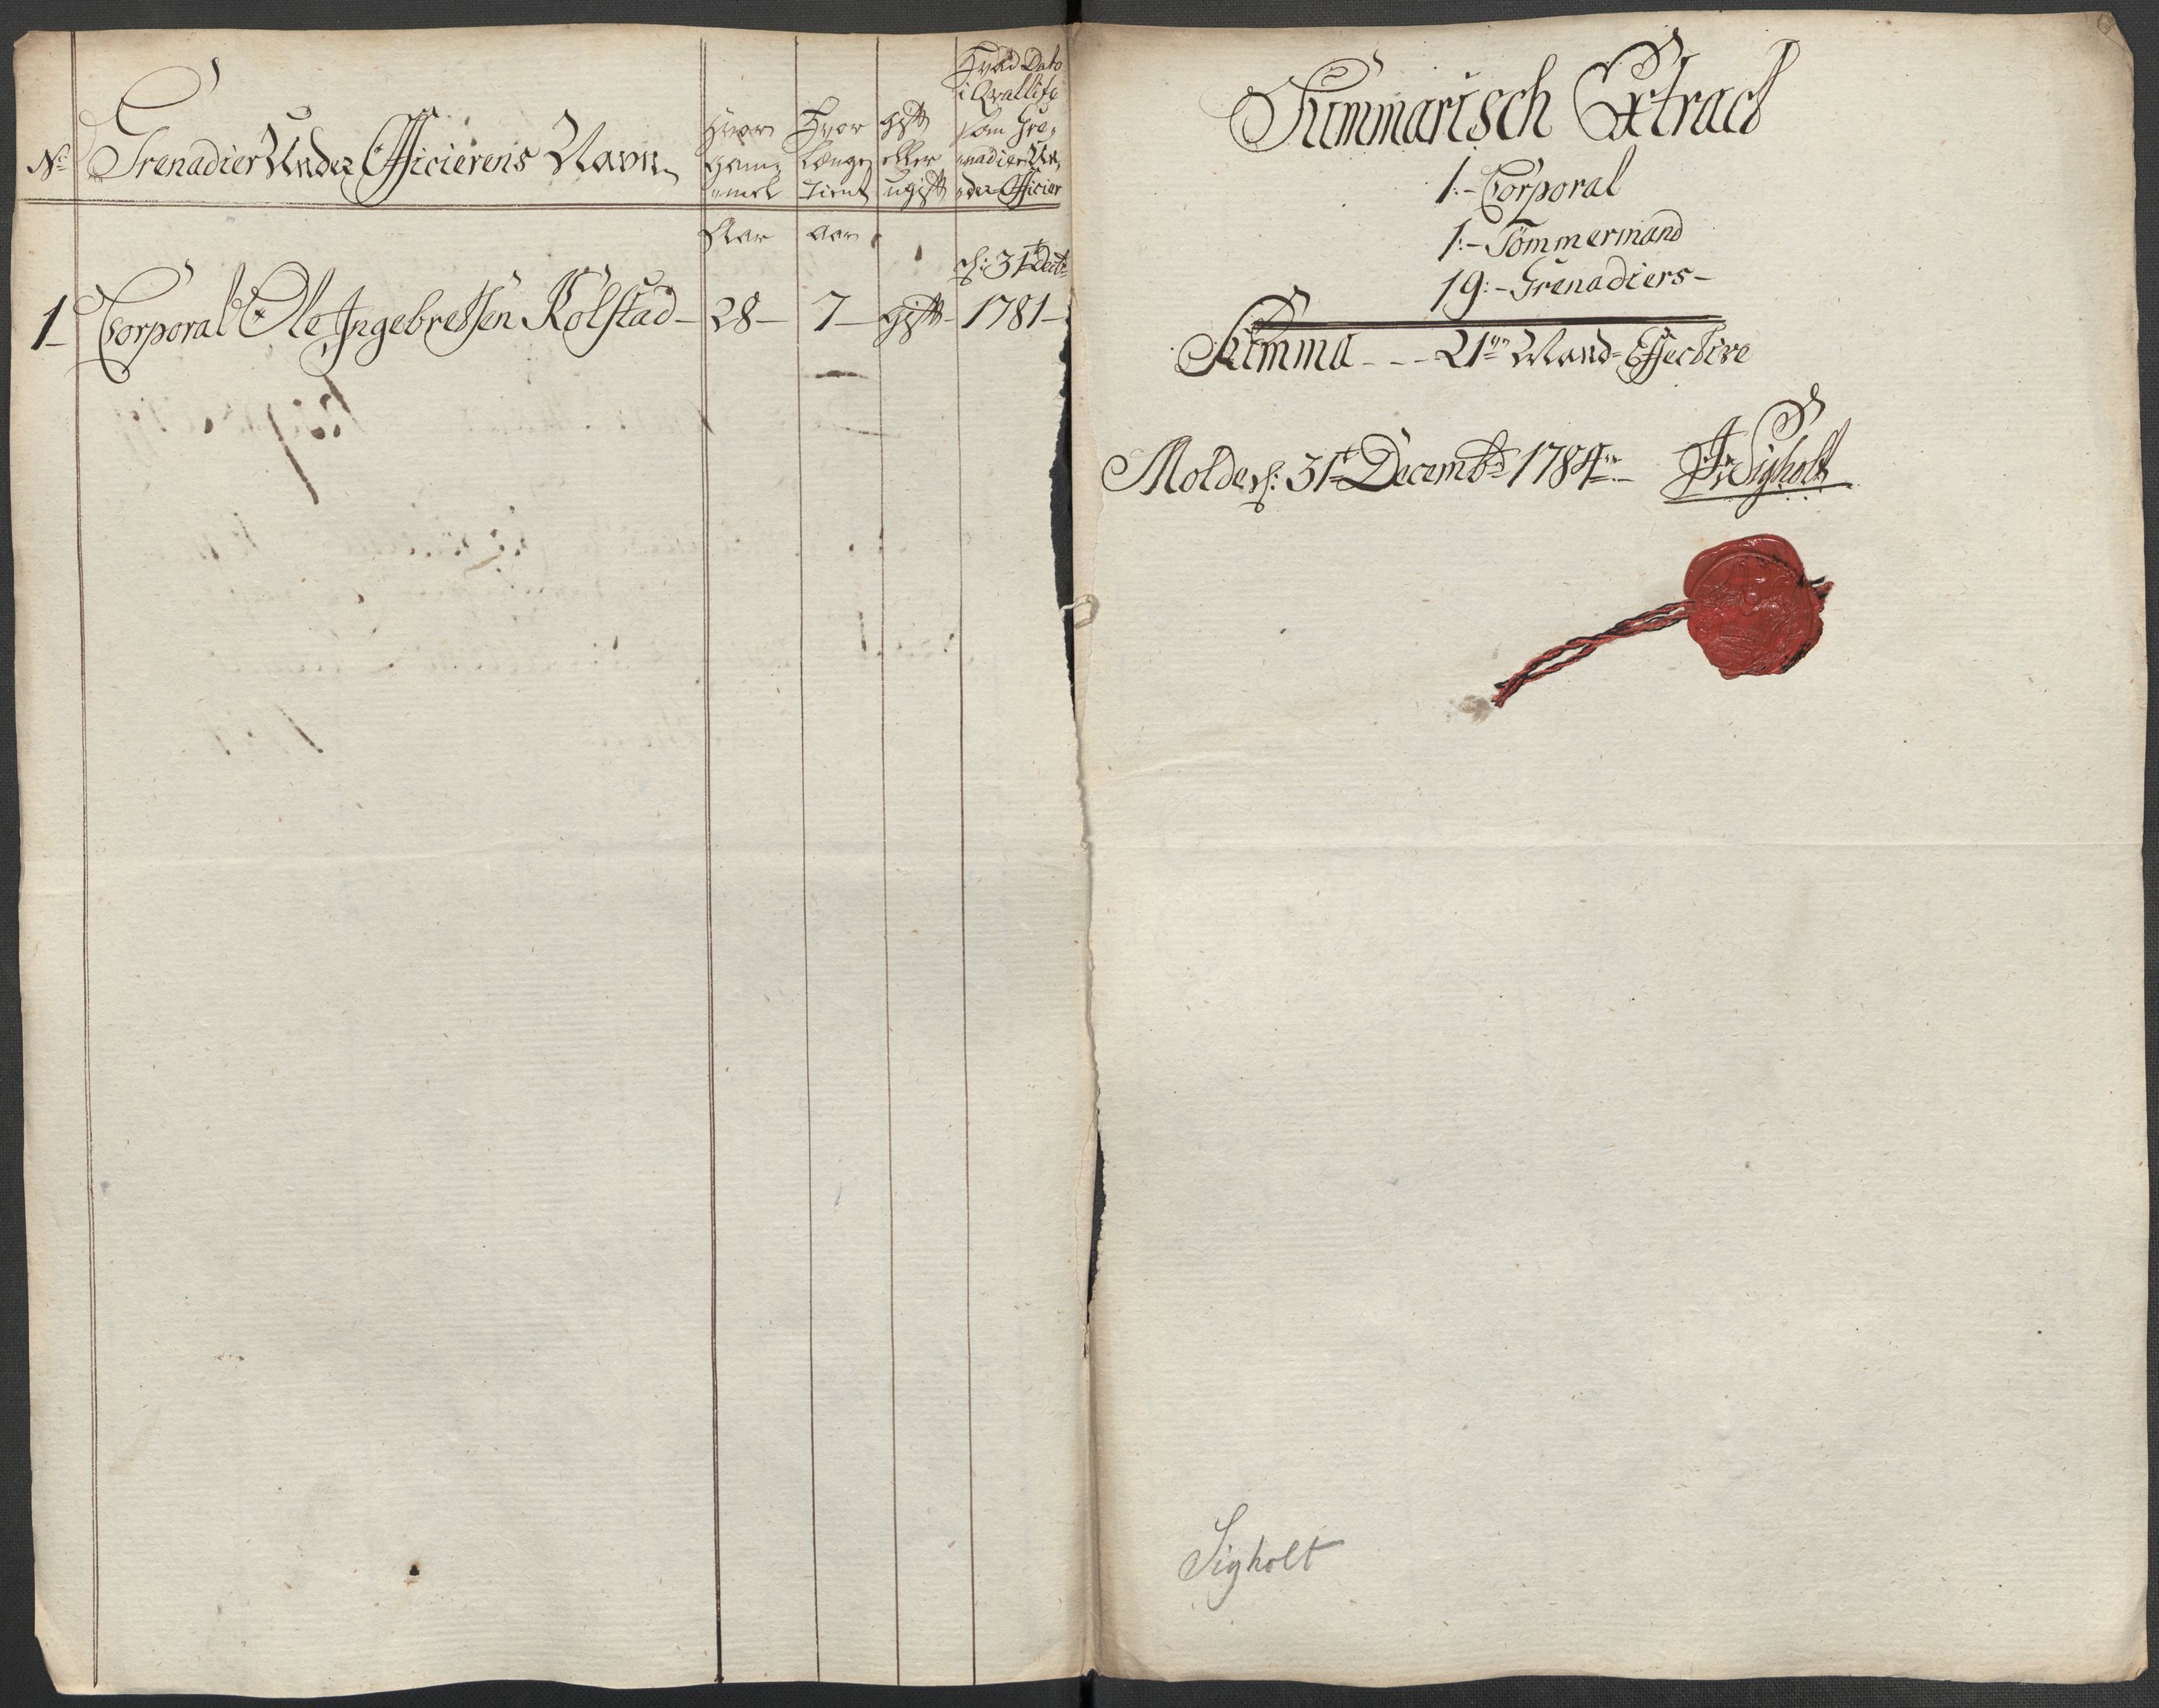 No
Grenadier Under Officierens Navn
Hvor
gam¬
mel
Hvor
længe
tient
gift
eller
ugift
Hvad Dato
i Qvallite
som Gre¬
nadier Un¬
der Officier
Aar
aar
d: 31t Decbr
1 Corporal Ole Ingebretsen Kolstad 28 7 gift 1781
Summarisch Extract
1:- Corporal
1:- Tömmermand
19:- Grenadiers-
Summa - - - 21 Mand Effective
Molde d: 31t Decembr 1784 Sigholt
Sigholt